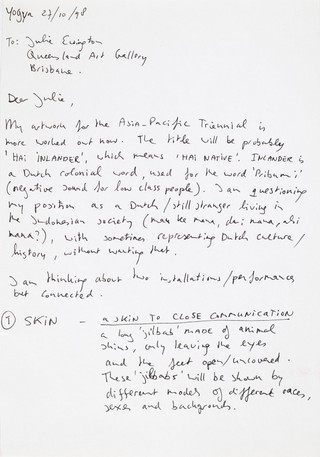 Yogya 27/10/98
To: Julie Ewington
Queensland Art Gallery
Brisbane.
Dear Julie,
My artwork for the Asia-Pacific Triennial is
more worked out now. The title will be probably
'HAI INLANDER', which means 'HAI NATIVE'. INLANDER is
a Dutch colonial word, used for the word 'Pribumi'
(negative sound for low class people). I am questioning
my position as a Dutch / still stranger living in
the Indonesian society (mau ke mana, dari mana, asli
mana?), with sometimes representing Dutch culture/
history, without wanting that.
I am thinking about two installations/performances
but connected.
① SKIN - a SKIN TO CLOSE COMMUNICATION
a long 'jilbab' made of animal
skins, only leaving the eyes
and the feet open/uncovered.
These 'jilbabs' will be shown by
different models of different races,
sexes and backgrounds.